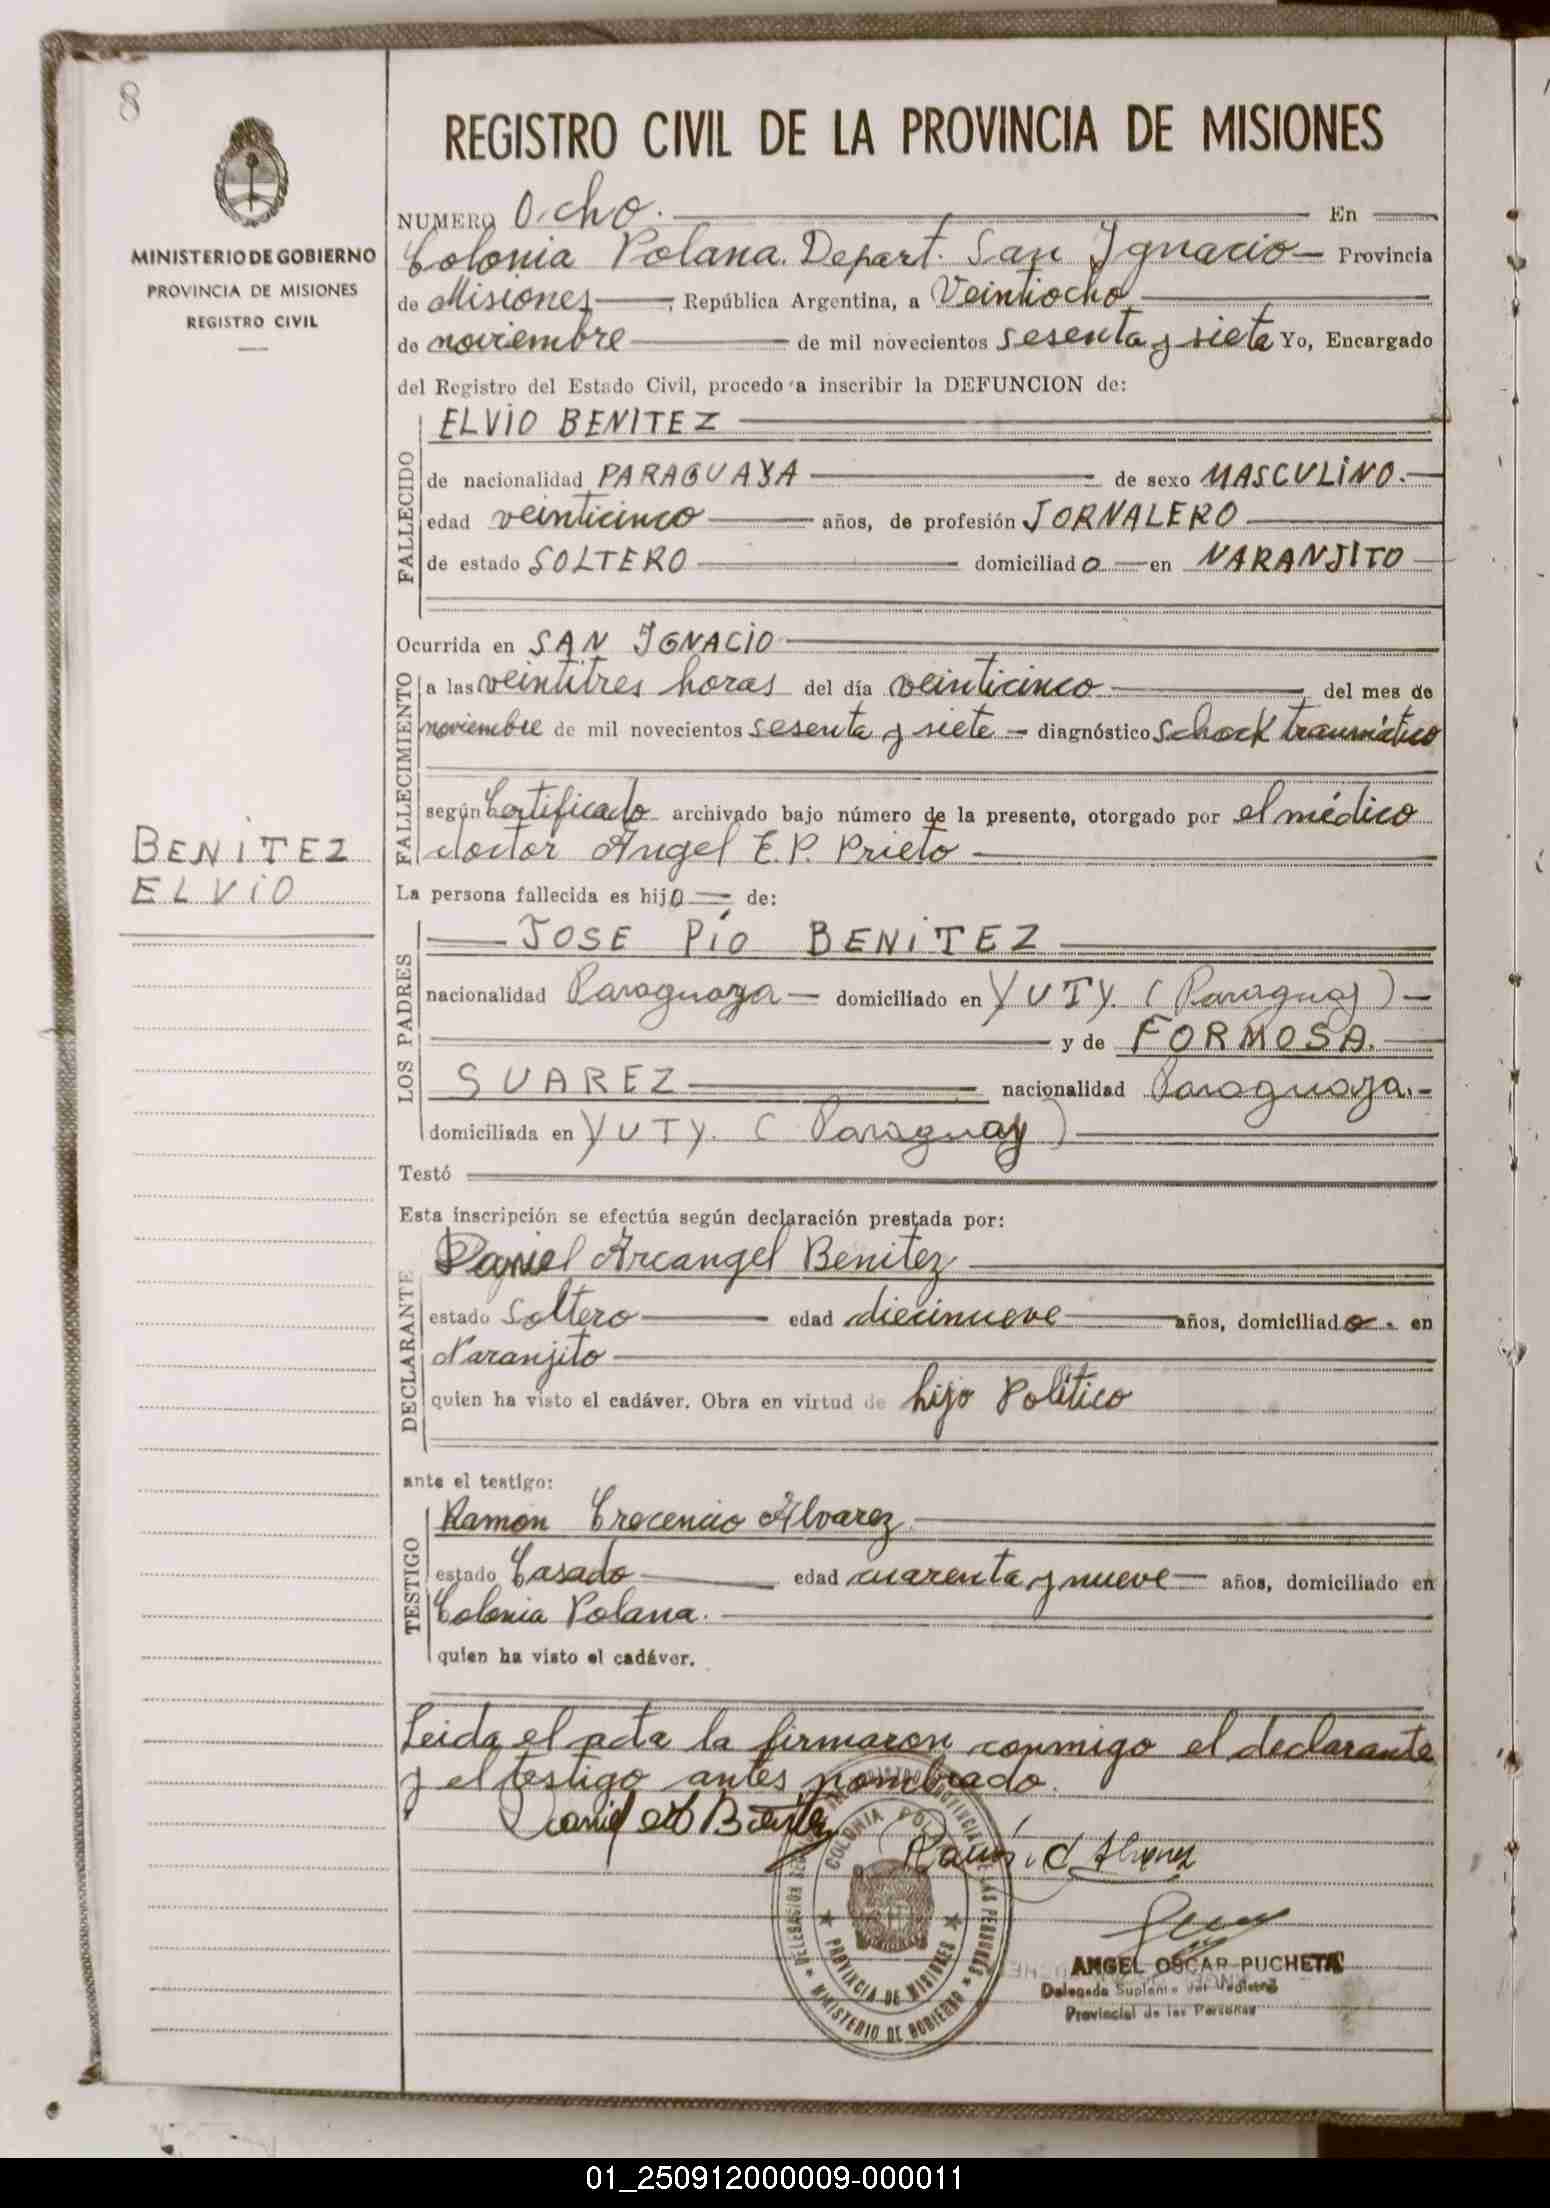 8
MINISTERIO DE GOBIERNO
PROVINCIA DE MISIONES
REGISTRO CIVIL
BENITEZ
ELVIO
REGISTRO CIVIL DE LA PROVINCIA DE MISIONES
NUMERO Ocho. En
Colonia Polana. Depart. San Ignacio Provincia
de Misiones, República Argentina, a Veintiocho
de noviembre de mil novecientos sesenta y siete Yo, Encargado
del Registro del Estado Civil, procedo a inscribir la DEFUNCION de:
FALLECIDO
ELVIO BENITEZ
de nacionalidad PARAGUAYA de sexo MASCULINO.
edad veinticinco años, de profesión JORNALERO
de estado SOLTERO domiciliado en NARANJITO
Ocurrida en SAN IGNACIO
FALLECIMIENTO
a las veintitres horas del día veinticinco del mes de
noviembre de mil novecientos sesenta y siete diagnóstico Schock traumático
según Certificado archivado bajo número de la presente, otorgado por el médico
doctor Angel E. P. Prieto
La persona fallecida es hijo de:
LOS PADRES
JOSE PÍO BENITEZ
nacionalidad Paraguaya domiciliado en YUTY. (Paraguay)
y de FORMOSA.
SUAREZ nacionalidad Paraguaya.
domiciliada en YUTY. (Paraguay)
Testó
Esta inscripción se efectúa según declaración prestada por:
DECLARANTE
Daniel Arcangel Benitez
estado Soltero edad diecinueve años, domiciliado. en
Naranjito
quien ha visto el cadáver. Obra en virtud de hijo Político
ante el testigo:
TESTIGO
Ramón Crecencio Alvarez
estado Casado edad cuarenta y nueve años, domiciliado en
Colonia Polana.
quien ha visto el cadáver.
Leida el acta la firmaron conmigo el declarante
y el testigo antes nombrado.
Ramón C Alvarez
COLONIA POLANA
PROVINCIA DE MISIONES
MINISTERIO DE GOBIERNO
ANGEL OSCAR PUCHETA
Delegado Suplente del Registro
Provincial de las Personas
01_250912000009-000011